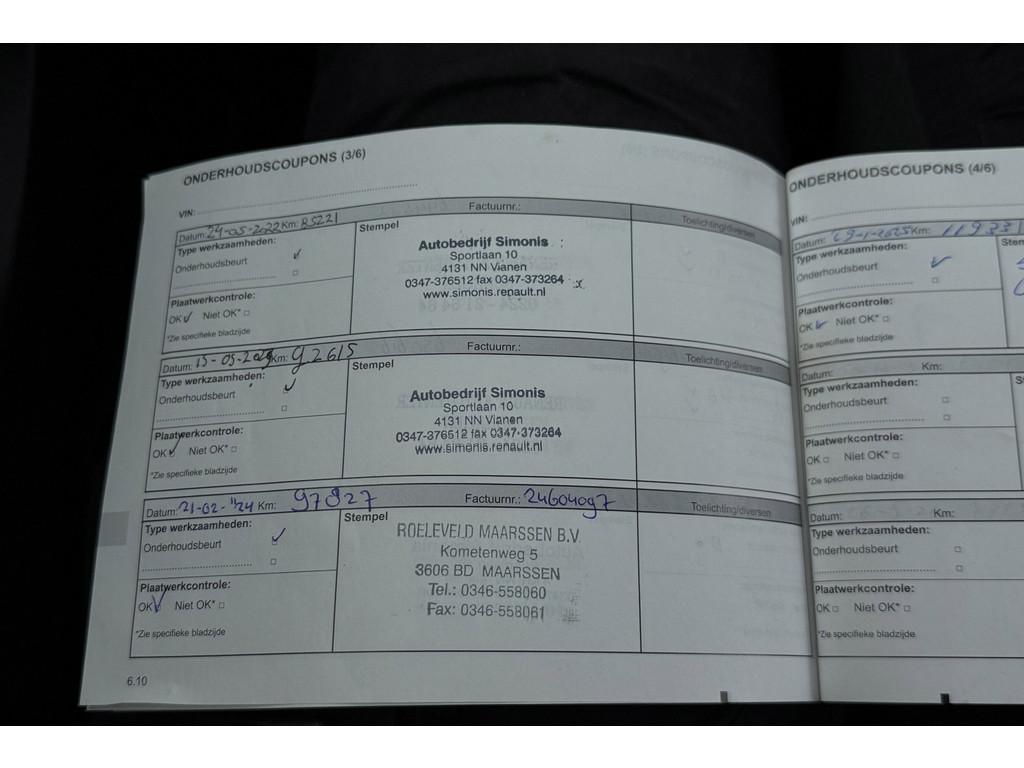 ONDERHOUDSCOUPONS (3/6)
VIN:
Datum: 24-05-2022 Km: 85221
Factuurnr.:
Toelichting/diversen
Type werkzaamheden:
Onderhoudsbeurt
Plaatwerkcontrole:
OK Niet OK*
*Zie specifieke bladzijde
Stempel
Autobedrijf Simonis
Sportlaan 10
4131 NN Vianen
0347-376512 fax 0347-373264
www.simonis.renault.nl
Datum: 15-05-2023 Km: 92615
Factuurnr.:
Toelichting/diversen
Type werkzaamheden:
Onderhoudsbeurt
Plaatwerkcontrole:
OK Niet OK*
*Zie specifieke bladzijde
Stempel
Autobedrijf Simonis
Sportlaan 10
4131 NN Vianen
0347-376512 fax 0347-373264
www.simonis.renault.nl
Datum: 21-02-'24 Km: 97827
Factuurnr.: 24604097
Toelichting/diversen
Type werkzaamheden:
Onderhoudsbeurt
Plaatwerkcontrole:
OK Niet OK*
*Zie specifieke bladzijde
Stempel
ROELEVELD MAARSSEN B.V.
Kometenweg 5
3606 BD MAARSSEN
Tel.: 0346-558060
Fax: 0346-558061
6.10
ONDERHOUDSCOUPONS (4/6)
VIN:
Datum: 29-1-2025 Km: 119331
Type werkzaamheden:
Onderhoudsbeurt
Plaatwerkcontrole:
OK Niet OK*
*Zie specifieke bladzijde
Datum: Km:
Type werkzaamheden:
Onderhoudsbeurt
Plaatwerkcontrole:
OK Niet OK*
*Zie specifieke bladzijde
Datum: Km:
Type werkzaamheden:
Onderhoudsbeurt
Plaatwerkcontrole:
OK Niet OK*
*Zie specifieke bladzijde